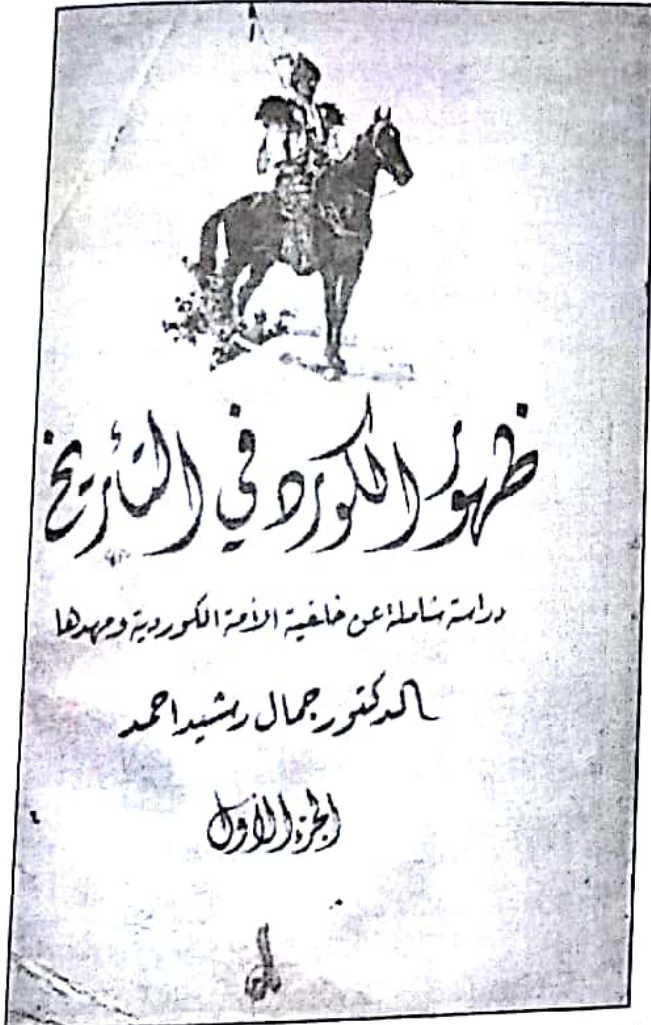 ظهور الكورد في التأريخ
دراسة شاملة عن خلفية الأمة الكوردية ومهدها
الدكتور جمال رشيد احمد
الجزء الأول